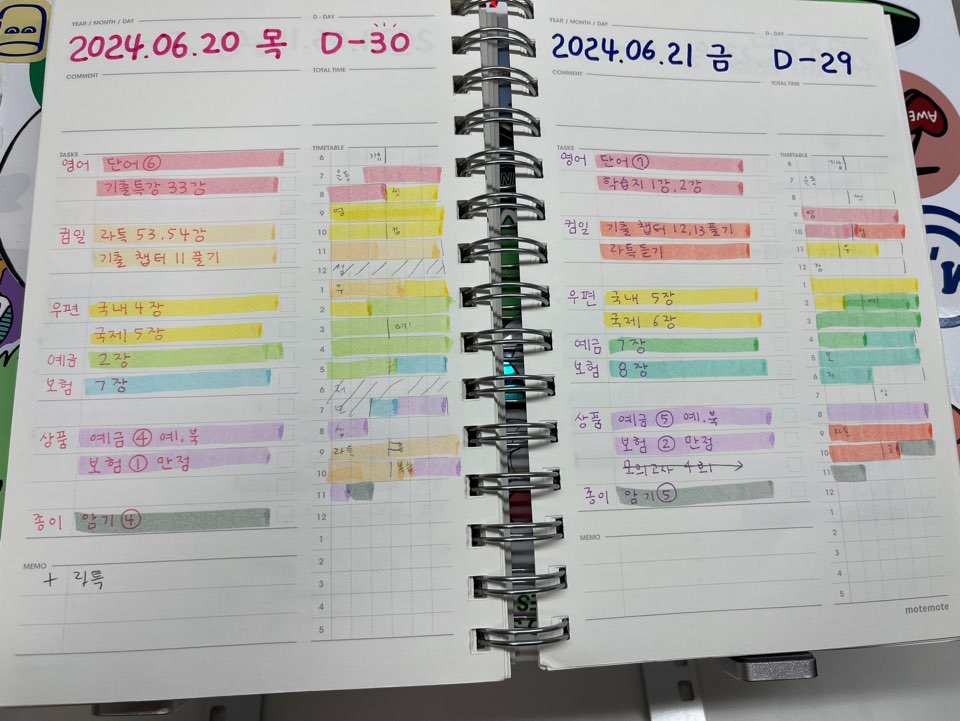 YEAR / MONTH / DAY
D - DAY
2024.06.20 목
D-30
COMMENT
TOTAL TIME
TASKS
TIMETABLE
영어 단어⑥
기출특강 33강
컴일 라득 53,54강
기출 챕터 11 풀기
우편 국내 4장
국제 5장
예금 2장
보험 7장
상품 예금 ④ 예.북
보험 ① 만점
종이 암기④
6
7 운동
8
9 영
10 컴
11
12
1 우
2
3 예
4
5
6
7
8 상
9 라득
10
11
12
1
2
3
4
5
MEMO
+ 라득
YEAR / MONTH / DAY
D - DAY
2024.06.21 금
D-29
COMMENT
TOTAL TIME
TASKS
TIMETABLE
영어 단어⑦
학습지 1강, 2강
컴일 기출 챕터 12,13풀기
라득듣기
우편 국내 5장
국제 6장
예금 7장
보험 8장
상품 예금 ⑤ 예.북
보험 ② 만점
모의고사 4회
종이 암기⑤
6
7 운동
8
9 영
10 컴
11 우
12 점
1
2 예
3
4
5
6
7
8
9 라득
10
11
12
1
2
3
4
5
MEMO
motemote
AWE